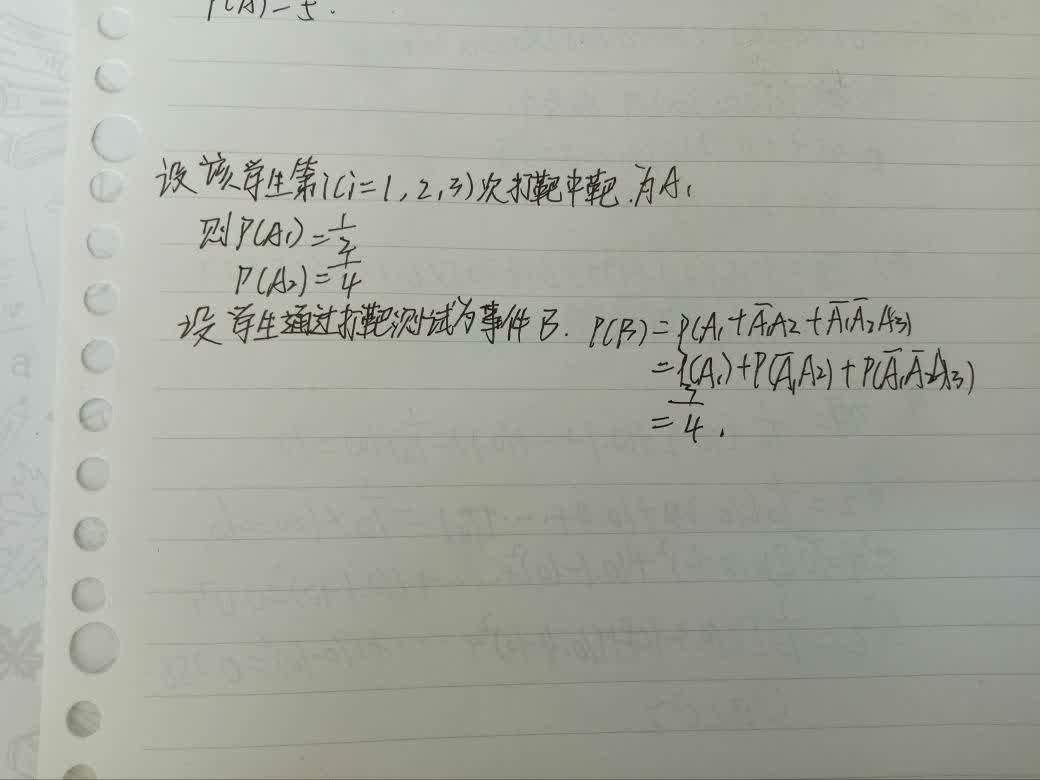 P(A)=5.
设该学生第i(i=1,2,3)次打靶中靶为A₁
则P(A₁)=1/2
P(A₂)=1/4
设学生通过打靶测试为事件B. P(B)=P(A₁+A̅₁A₂+A̅₁A̅₂A₃)
=P(A₁)+P(A̅₁A₂)+P(A̅₁A̅₂A₃)
=3/4.